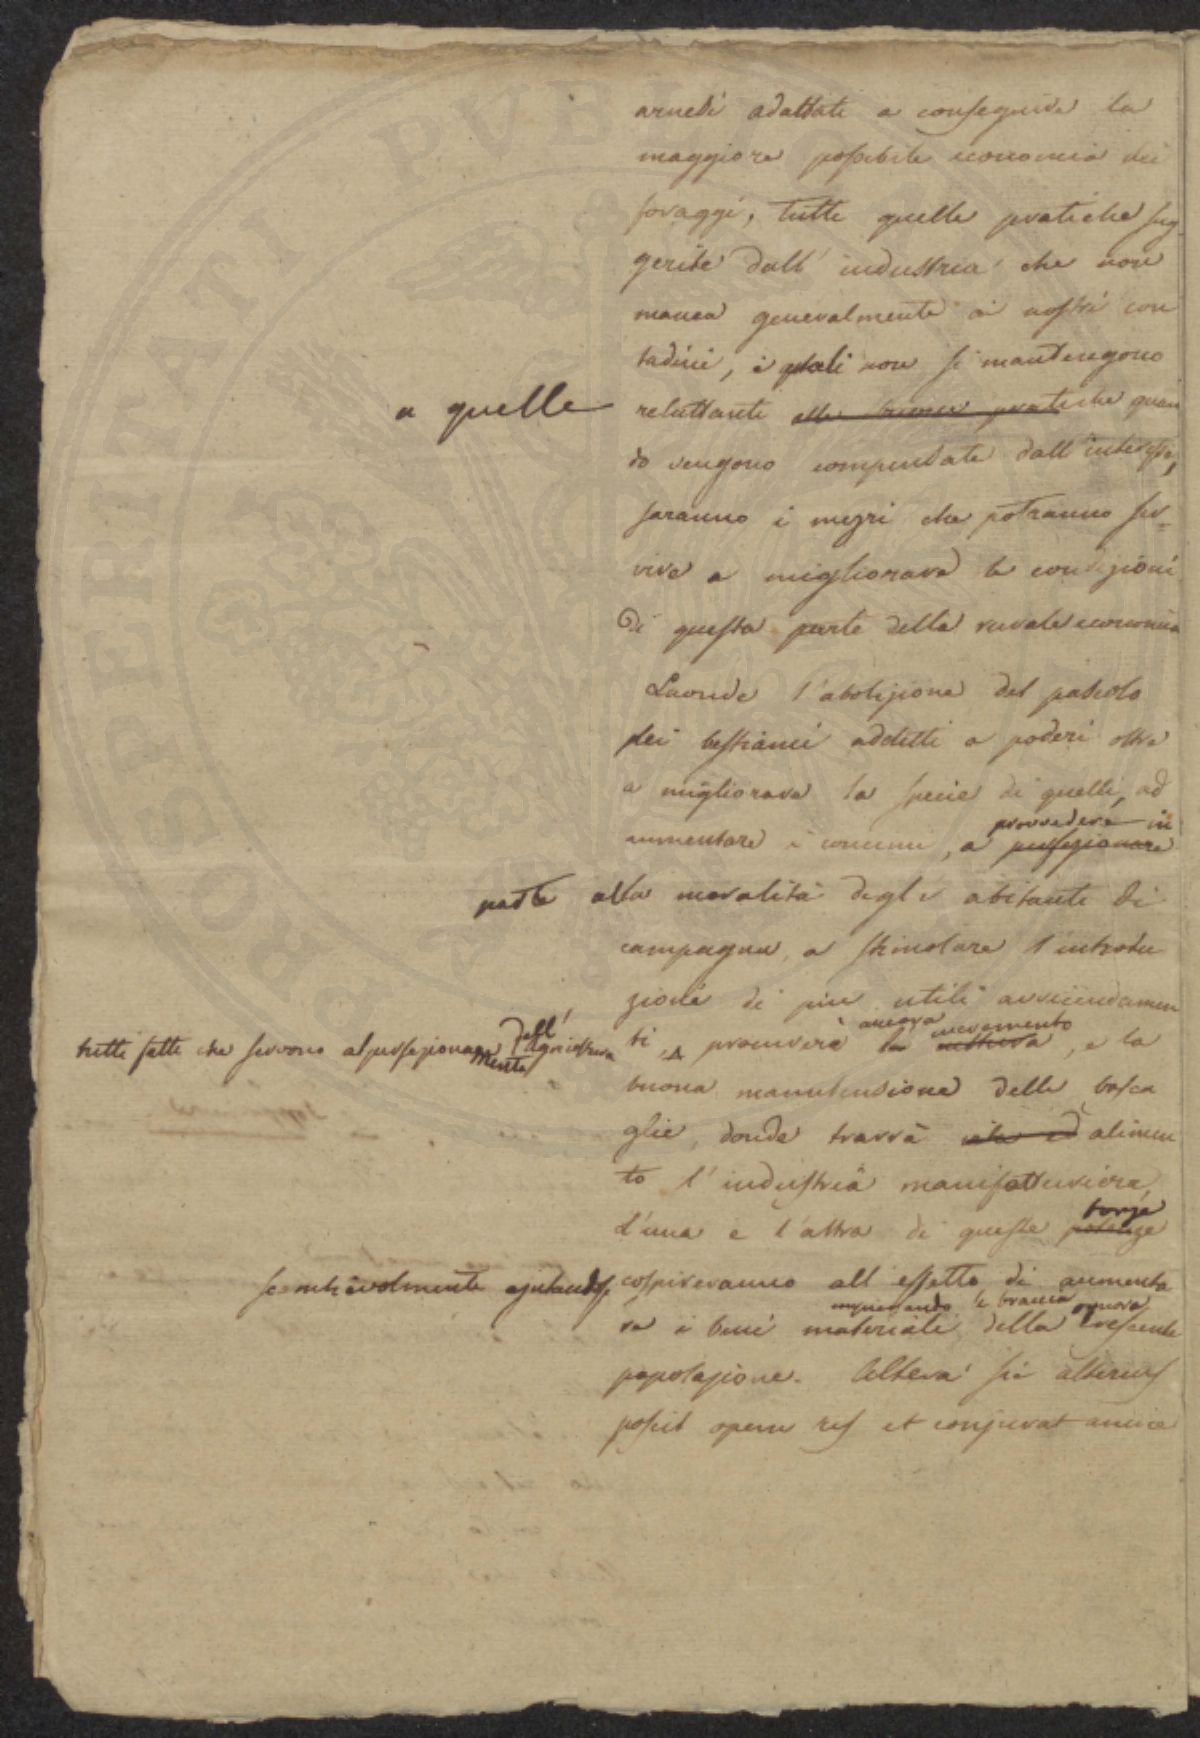 arnesi adattati a conseguire la
maggiore possibile economia dei
foraggi, tutte quelle pratiche sug
gerite dall' industria che non
manca generalmente ai nostri con
tadini, i quali non si mantengono
a quelle
reluttanti alle buone pratiche quan
do vengono compensate dall'interesse,
saranno i mezzi che potranno ser=
vire a migliorare le condizioni
di questa parte della rurale economia
Laonde l'abolizione del pascolo
dei bestiami addetti a poderi oltre
a migliorare la specie di quelli, ad
provvederà in
aumentare i concimi, a perfezionare
parte alla moralità degli abitanti di
campagna, a stimolare l'introdu
zione di piu utili avvicendamen
tutti fatti che servono al perfezionamento dell' Agricoltura
ancora incremento
ti, procurerà la coltura, e la
buona manutenzione delle bosca
glie, donde trarrà ed alimen
to l'industria manifatturiera,
forze
L'una e l'altra di queste potenze
scambievolmente ajutandosi cospireranno all'effetto di aumenta
le braccia
re i beni materiali della crescente
popolazione. Altera sic alterius
poscit opem res et conjurat amice